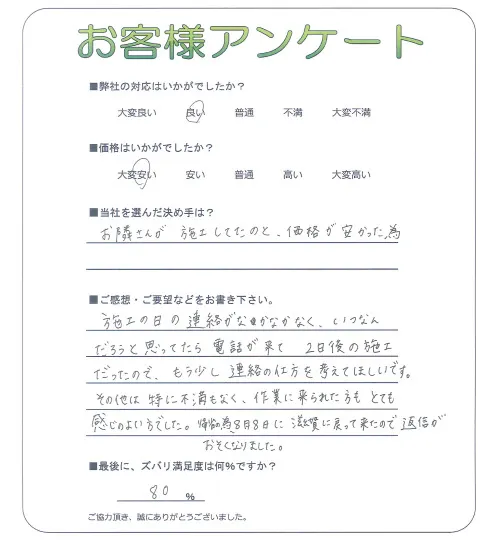 お客様アンケート
■弊社の対応はいかがでしたか？
大変良い 良い 普通 不満 大変不満
■価格はいかがでしたか？
大変安い 安い 普通 高い 大変高い
■当社を選んだ決め手は？
お隣さんが 施工してたのと、価格が安かった為
■ご感想・ご要望などをお書き下さい。
施工の日の連絡がなかなかなく、いつなん
だろうと思ってたら電話が来て 2日後の施工
だったので、もう少し連絡の仕方を考えてほしいです。
その他は特に不満もなく、作業に来られた方もとても
感じのよい方でした。帰省の為8月8日に滋賀に戻って来たので返信が
おそくなりました。
■最後に、ズバリ満足度は何%ですか？
80 %
ご協力頂き、誠にありがとうございました。